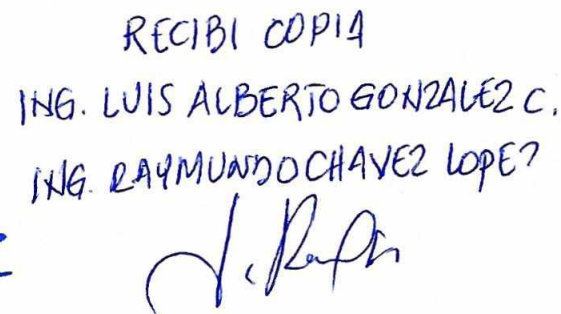 RECIBI COPIA
ING. LUIS ALBERTO GONZALEZ C.
ING. RAYMUNDO CHAVEZ LOPEZ